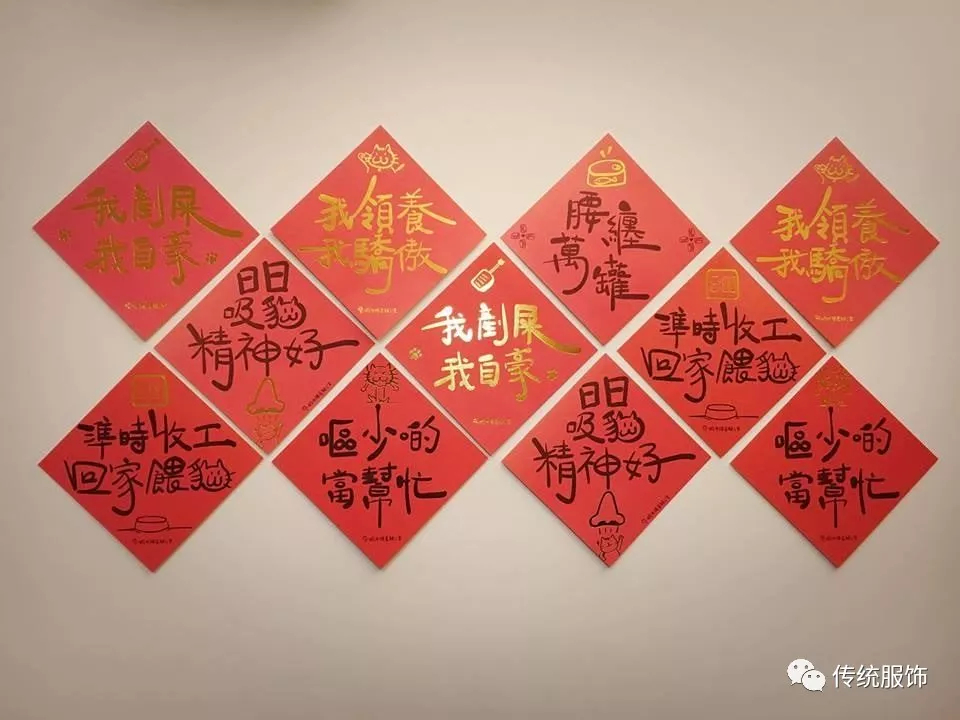 我剷屎
我自豪
我領養
我驕傲
腰纏
萬罐
我領養
我驕傲
日日
吸貓
精神好
我剷屎
我自豪
準時收工
回家餵貓
準時收工
回家餵貓
嘔少啲
當幫忙
日日
吸貓
精神好
嘔少啲
當幫忙
传统服饰